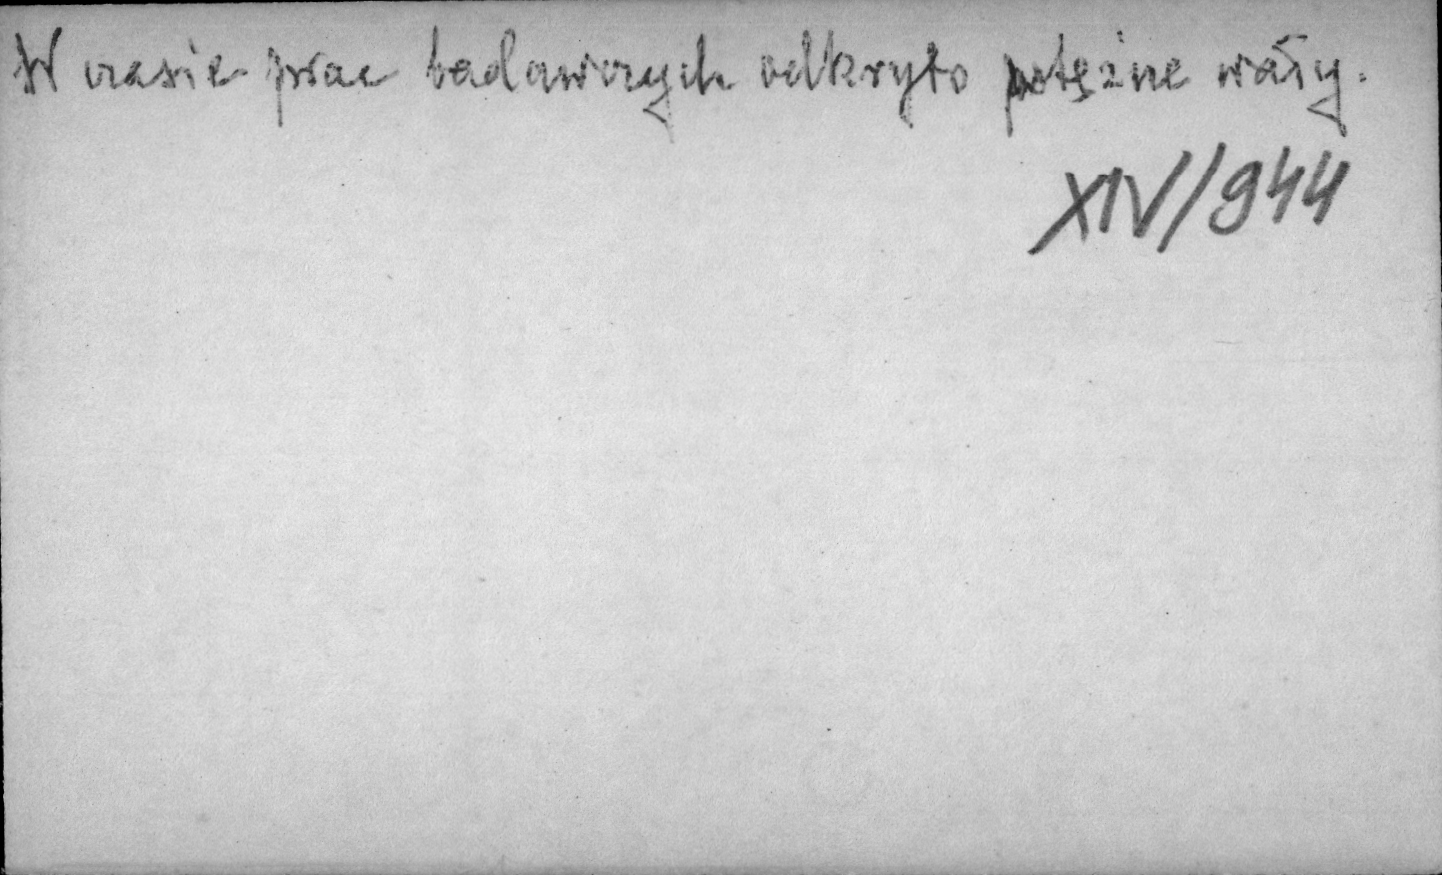 W czasie prac badawczych odkryto potężne wały.
XIV/944